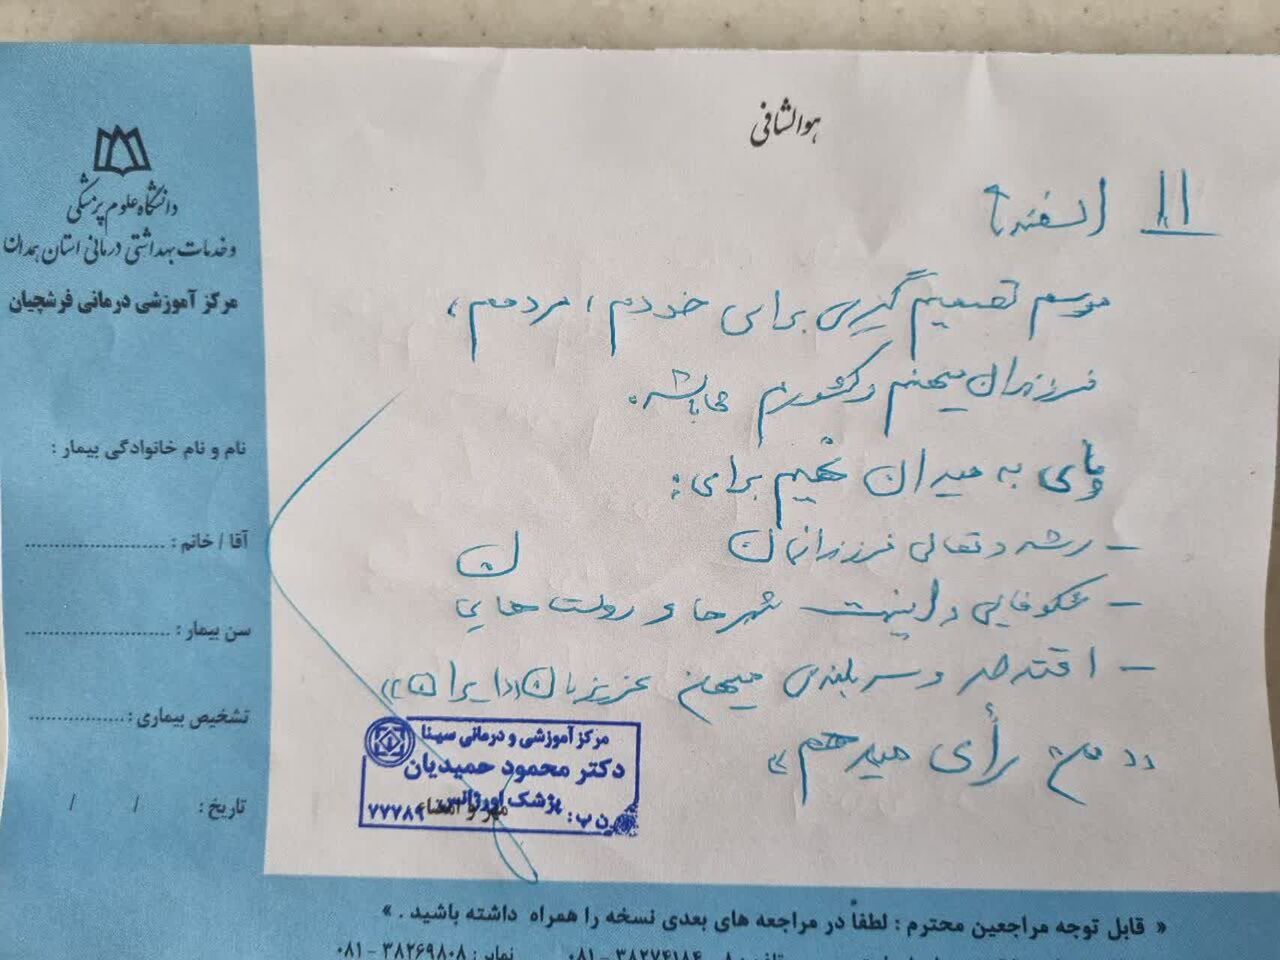 هوالشافی
دانشگاه علوم پزشکی
و خدمات بهداشتی درمانی استان همدان
مرکز آموزشی درمانی فرشچیان
نام و نام خانوادگی بیمار :
آقا / خانم : ........................
سن بیمار : ........................
تشخیص بیماری : ................
تاریخ : / /
۱۱ اسفند
موسم تصمیم گیری برای خودم، مردمم،
فرزندان میهنم و کشورم میباشد.
پای به میدان نهیم برای:
– رشد و تعالی فرزندانمان
– شکوفایی و امنیت شهرها و روستاهای
– اقتدار و سربلندی میهن عزیزمان ((ایران))
((من رأی میدهم))
مرکز آموزشی و درمانی سینا
دکتر محمود حمیدیان
پزشک اورژانس
ن پ: ۷۷۷۸۹
مهر و امضاء
« قابل توجه مراجعین محترم : لطفاً در مراجعه های بعدی نسخه را همراه داشته باشید . »
نمابر: ۳۸۲۶۹۸۰۸ - ۰۸۱